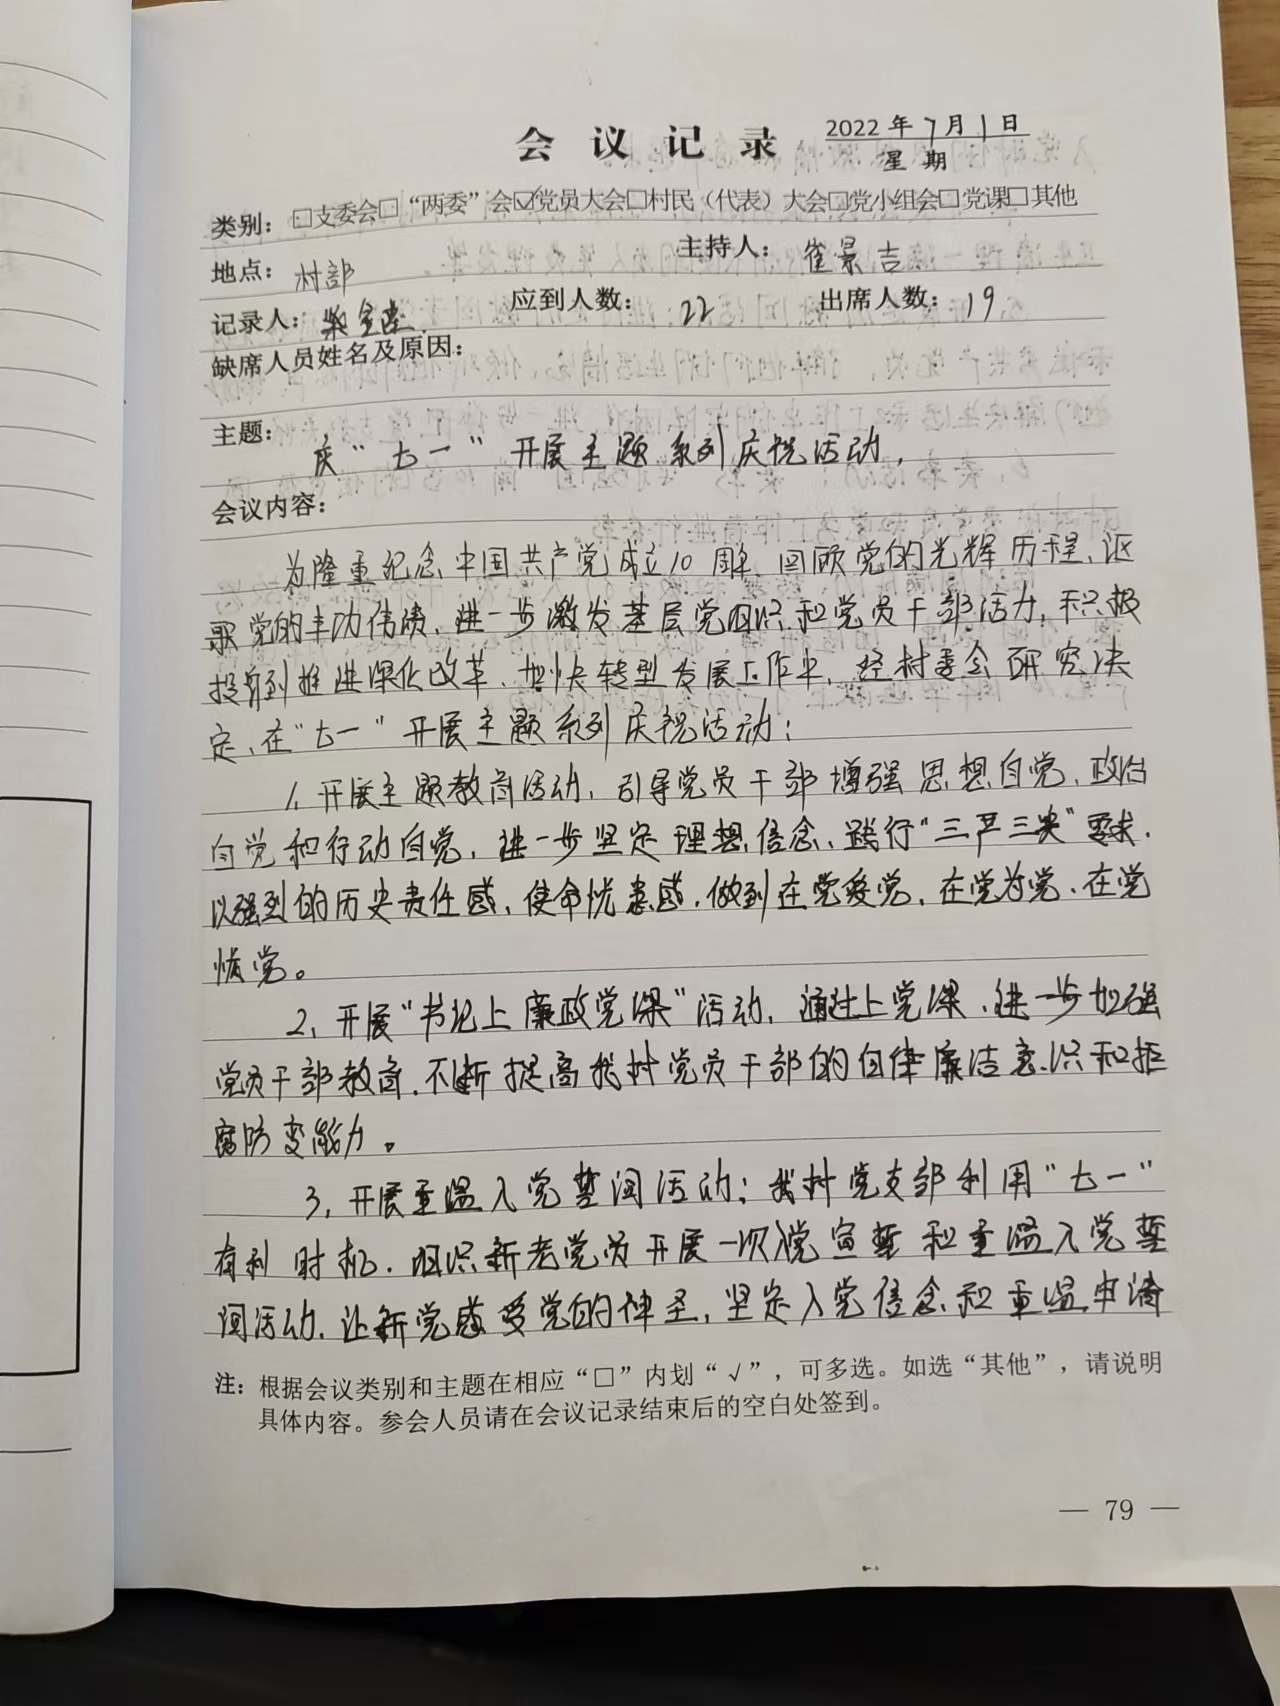 会议记录 2022年7月1日
星期
类别：□支委会□“两委”会☑党员大会□村民（代表）大会□党小组会□党课□其他
地点：村部 主持人：崔景吉
记录人： 应到人数：22 出席人数：19
缺席人员姓名及原因：
主题：庆“七一”开展主题系列庆祝活动，
会议内容：
为隆重纪念中国共产党成立10周年，回顾党的光辉历程、讴
歌党的丰功伟绩，进一步激发基层党组织和党员干部活力，积极
投身到推进深化改革、加快转型发展工作中，经村委会研究决
定，在“七一”开展主题系列庆祝活动：
1、开展主题教育活动，引导党员干部增强思想自觉、政治
自觉和行动自觉，进一步坚定理想信念，践行“三严三实”要求，
以强烈的历史责任感，使命忧患感，做到在党爱党，在党为党，在党
忧党。
2、开展“书记上廉政党课”活动，通过上党课，进一步加强
党员干部教育，不断提高我村党员干部的自律廉洁意识和拒
腐防变能力。
3、开展重温入党誓词活动；我村党支部利用“七一”
有利时机，组织新老党员开展一次入党宣誓和重温入党誓
词活动，让新党感受党的神圣，坚定入党信念和重温申请
注：根据会议类别和主题在相应“□”内划“√”，可多选。如选“其他”，请说明
具体内容。参会人员请在会议记录结束后的空白处签到。
— 79 —